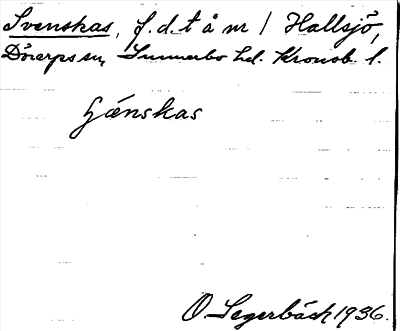 Svenskas, f.d. t å nr 1 Hallsjö,
Dörarps sn, Sunnerbo hd. Kronob. l.
Gænskas
O Segerbäck 1936.